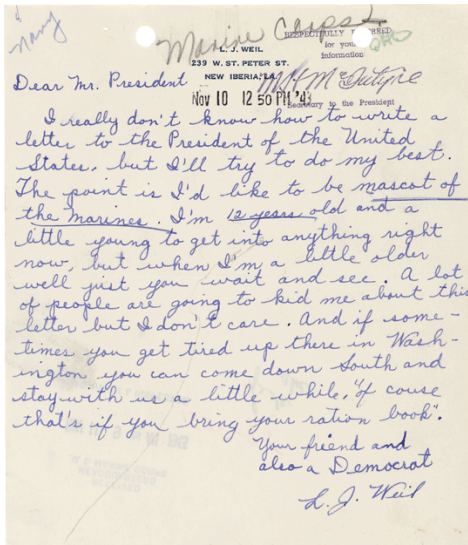 Navy
Marine Corps
RESPECTFULLY
for your
information
L. J. WEIL
239 W. ST. PETER ST.
NEW IBERIA, LA.
M H McIntyre
Secretary to the President
Nov 10 12 50 PM '43
Dear Mr. President
I really don't know how to write a
letter to the President of the United
States, but I'll try to do my best.
The point is I'd like to be mascot of
the Marines. I'm 12 years old and a
little young to get into anything right
now, but when I'm a little older
well just you wait and see. A lot
of people are going to kid me about this
letter but I don't care. And if some-
times you get tired up there in Wash-
ington you can come down South and
stay with us a little while, "of couse
that's if you bring your ration book".
Your friend and
also a Democrat
L. J. Weil